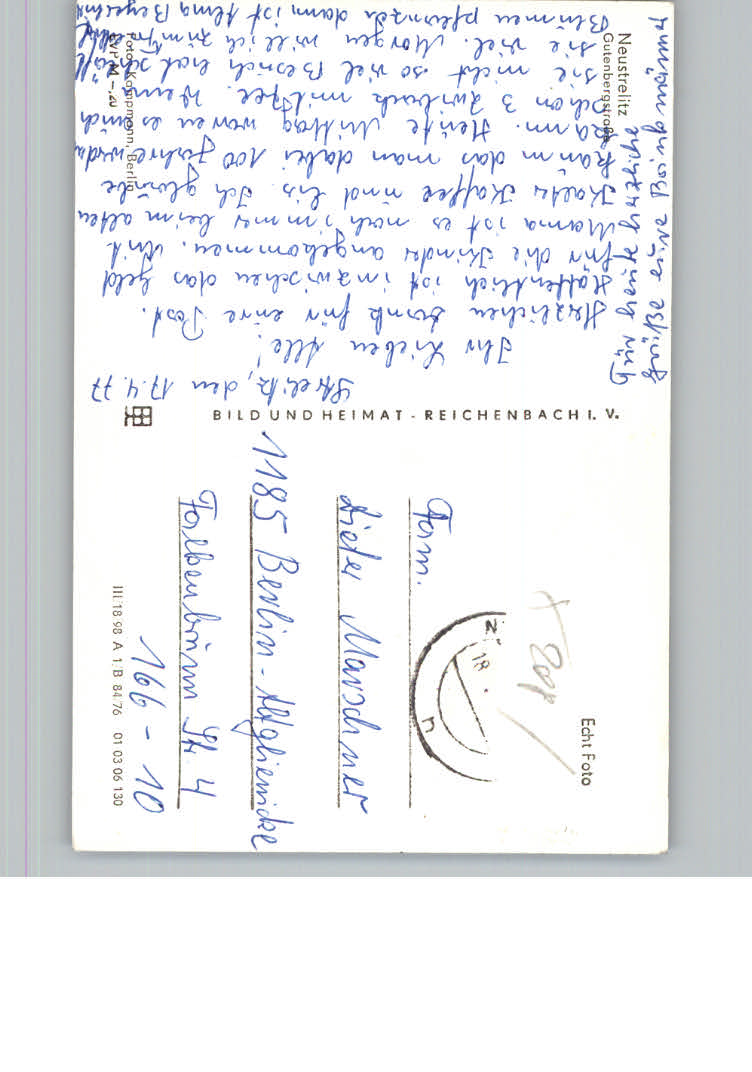 Strelitz, den 17.4.77
Ihr Lieben Alle!
Herzlichen Dank für eure Post.
Hoffentlich ist inzwischen das Geld
für die Kinder angekommen. Mit
Mama ist es noch immer beim alten
Kalter Kaffee und Eis. Ich glaube
kaum das man dabei 100 Jahre wird
kann. Heute Mittag waren es auch
schon 3 Zwieback mit Tee. Wenn
sie nicht so viel Besuch hat schläft
sie viel. Morgen will ich zum
Blümen pflanzen dann ist Alma
Grüße eure
Neustrelitz
Gutenbergstraße
Foto: Kampmann, Berlin
EVP M -,20
BILD UND HEIMAT - REICHENBACH I. V.
Echt Foto
18
Fam.
Dieter Marschner
1185 Berlin-Altglienicke
Str. 4
166 - 10
III 18 98 A 1/B 84/76 01 03 06 130